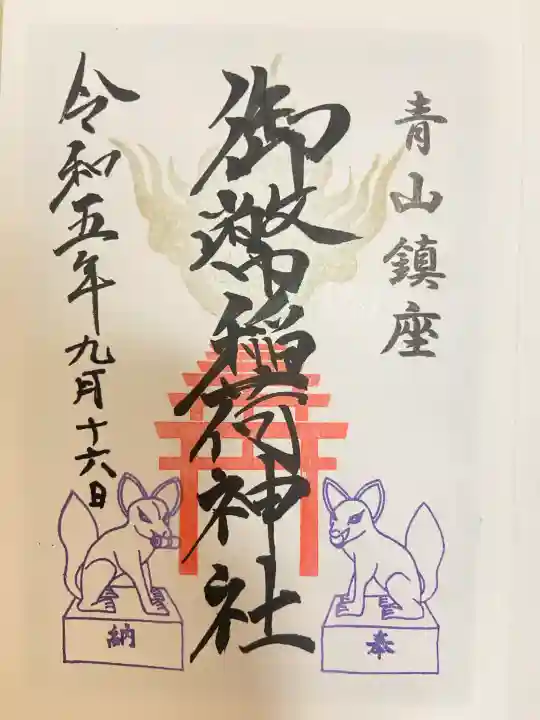 青山鎮座
御幣稲荷神社
令和五年九月十六日
奉
納